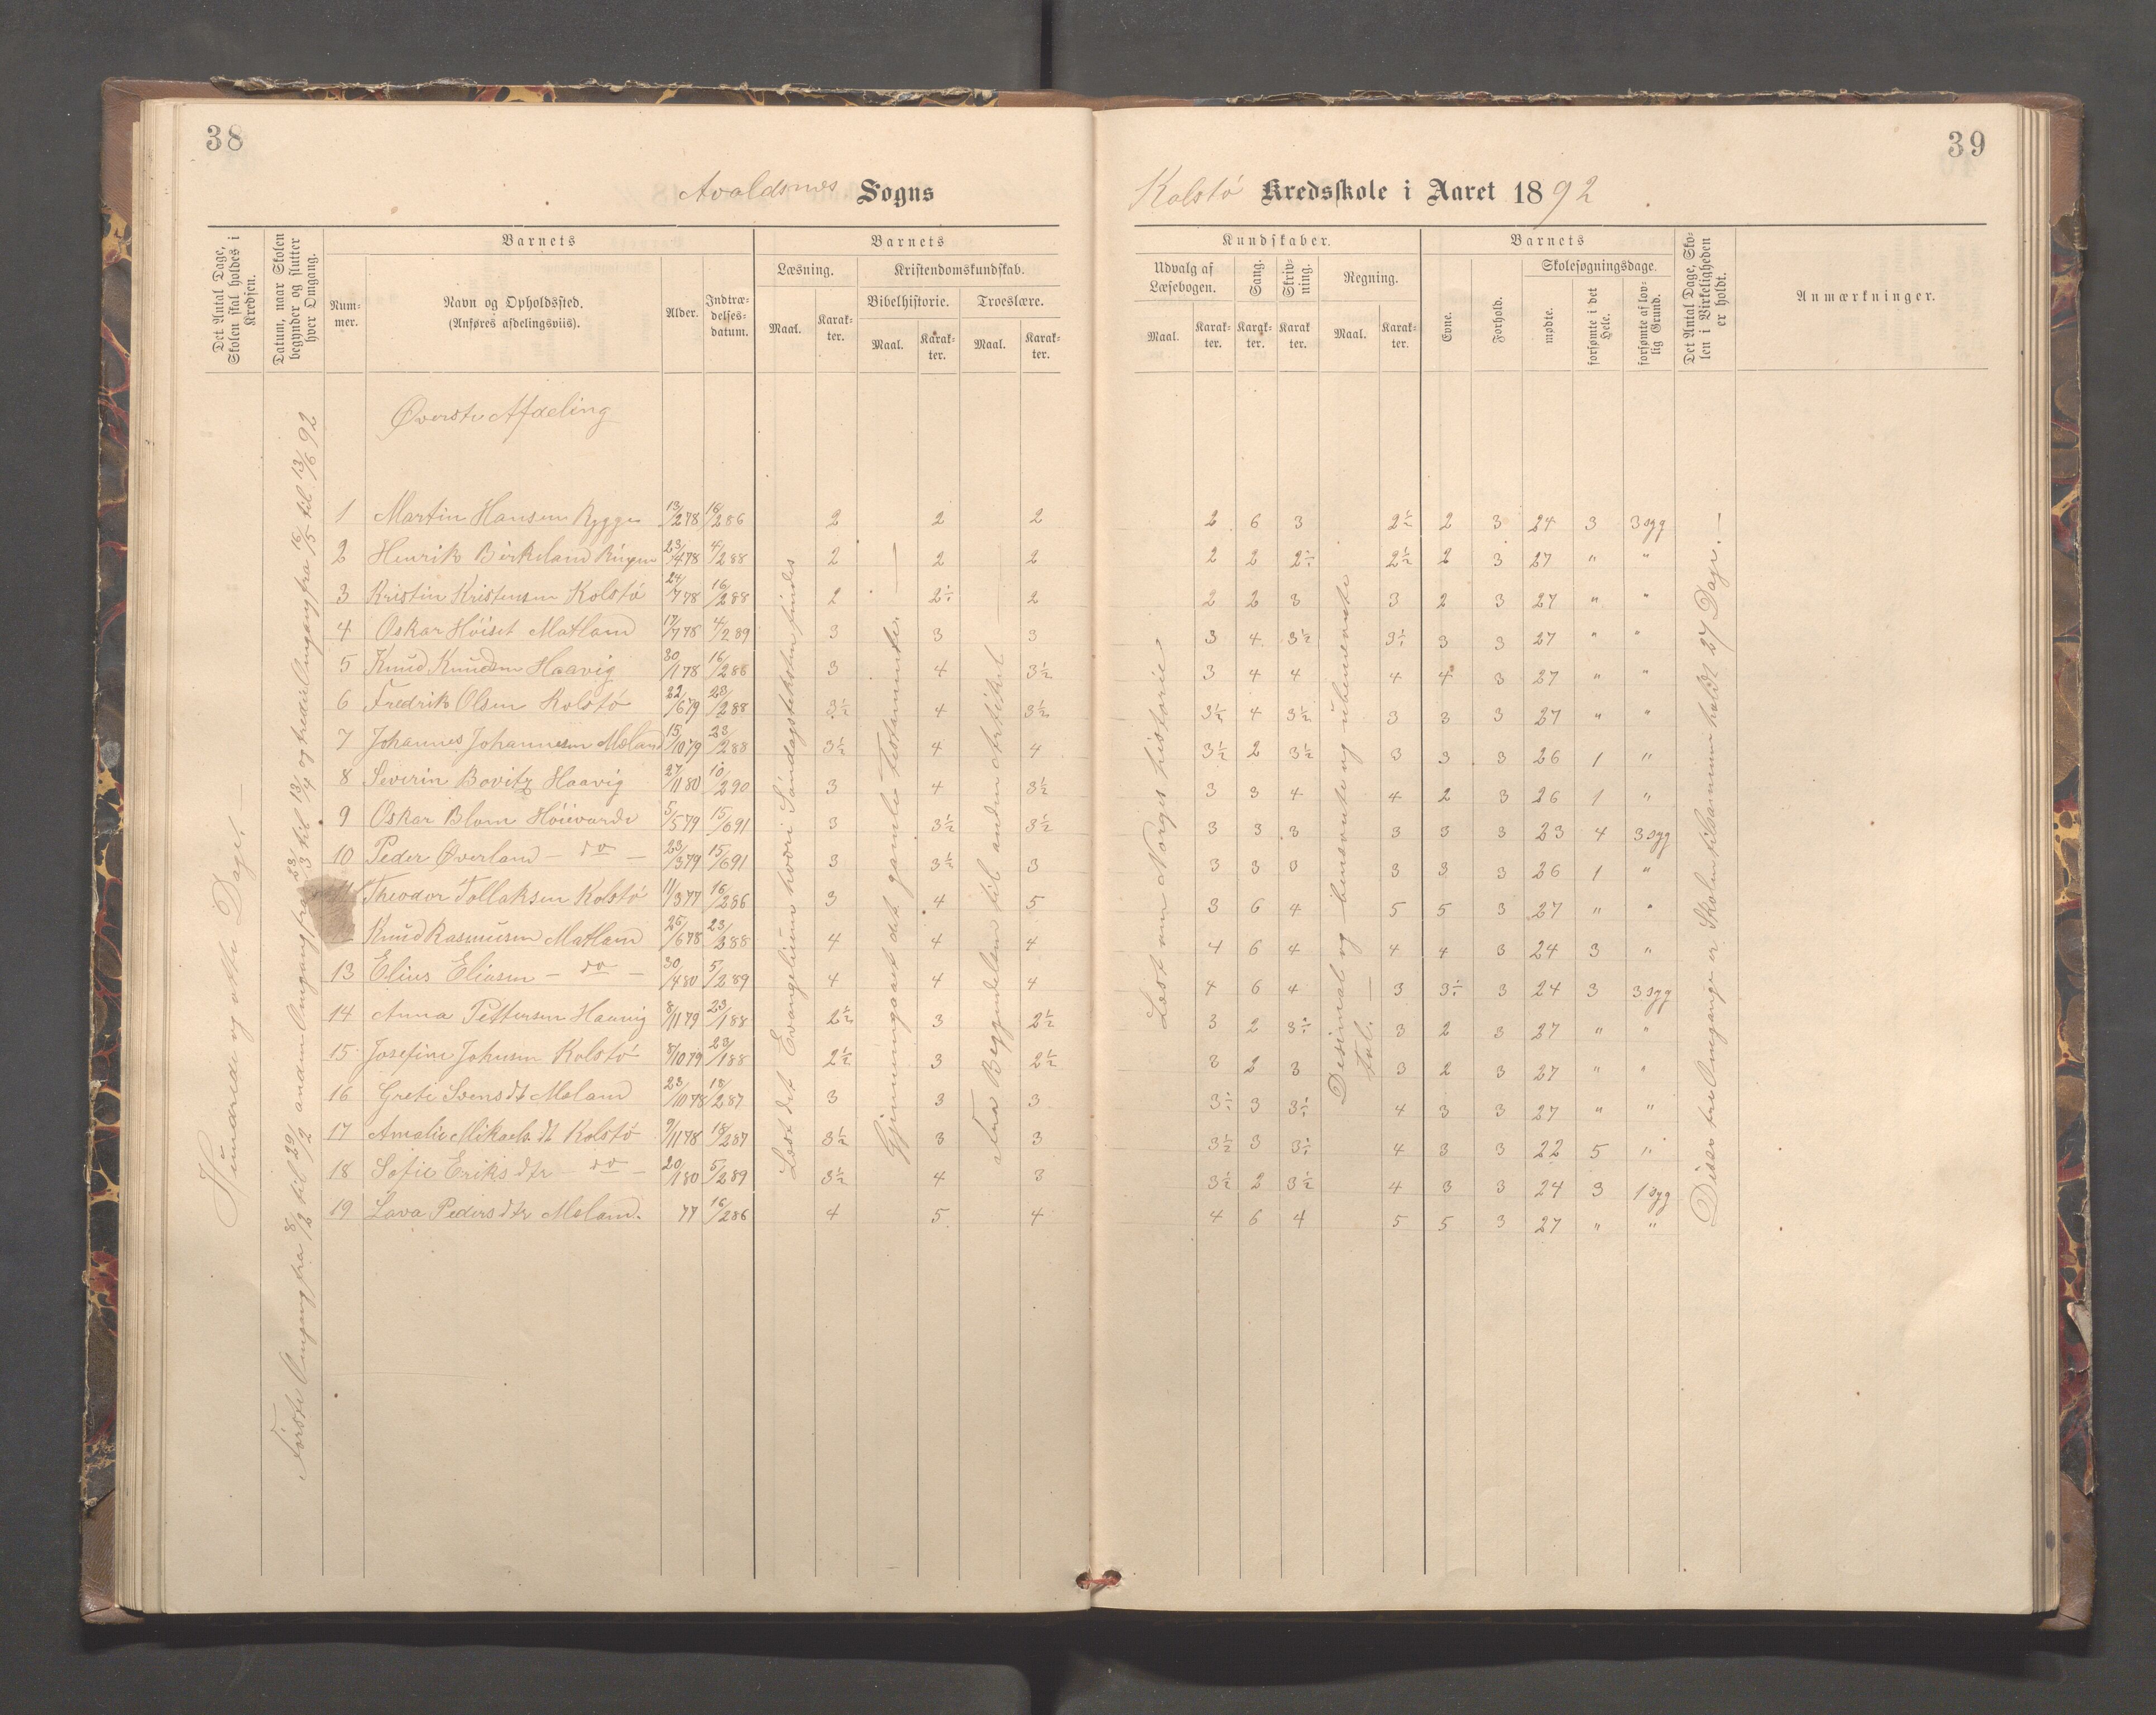 38
39
Avaldsnes Sogns
Kolstø Kredsskole i Aaret 1892
Det Antal Dage, Skolen skal holdes i Kredsen.
Datum, naar Skolen begynder og slutter hver Omgang.
Barnets
Num-mer.
Navn og Opholdssted. (Anføres afdelingsviis).
Alder.
Indtræ-delses-datum.
Barnets
Læsning.
Maal.
Karak-ter.
Kristendomskundskab.
Bibelhistorie.
Maal.
Karak-ter.
Troeslære.
Maal.
Karak-ter.
Kundskaber.
Udvalg af Læsebogen.
Maal.
Karak-ter.
Sang.
Karak-ter.
Skriv-ning.
Karak ter.
Regning.
Maal.
Karak-ter.
Barnets
Evne.
Forhold.
Skolesøgningsdage.
mødte.
forsømte i det Hele.
forsømte af lov-lig Grund.
Det Antal Dage, Sko-len i Virkeligheden er holdt.
Anmærkninger.
Hundrede og otte Dage. —
Første Omgang fra 8/2 til 29/2 anden Omgang fra 23/3 til 13/4 og tredie Omgang fra 16/5 til 13/6 92
Øverste Afdeling
Læst det Evangelium hvori Søndagsteksten findes
Gjennemgaaet det gamle Testamente. —
Fra Begyndelsen til anden Artikel
Læst om Norges historie
Desimal og bensævnte og ubenævnte Tal. —
Disse tre Omgange er Skolen tilsammen holdt 27 Dage. —
1 Martin Hansen Rygge 13/2 78 16/2 86 2 2 2 2 6 3 2½ 2 3 24 3 3 syg
2 Henrik Birkeland 23/4 78 4/2 88 2 2 2 2 2 2½ 2½ 2 3 27 " "
3 Kristin Kristensen Kolstø 24/7 78 16/2 88 2 2½ 2 2 2 3 3 2 3 27 " "
4 Oskar Høiset Matland 17/7 78 4/2 89 3 3 3 3 4 3½ 3½ 3 3 27 " "
5 Knud Knudsen Haavig 30/1 78 16/2 86 3 4 3½ 3 4 4 4 4 3 27 " "
6 Fredrik Olsen Kolstø 22/6 79 23/2 88 3½ 4 3½ 3½ 4 3½ 3 3 3 27 " "
7 Johannes Johannesen Meland 15/10 79 23/2 88 3½ 4 4 3½ 2 3½ 3 3 3 26 1 "
8 Severin Bovitz Haavig 27/11 80 10/2 90 3 4 3½ 3 3 4 4 2 3 26 1 "
9 Oskar Blom Høievarde 5/5 79 15/6 91 3 3½ 3½ 3 3 3 3 3 3 23 4 3 syg
10 Peder Øverland — do — 23/3 79 15/6 91 3 3½ 3 3 3 3 3 3 3 26 1 "
11 Theodor Tollaksen Kolstø 11/3 77 16/2 86 3 4 5 3 6 4 5 5 3 27 " "
Knud Rasmusen Matland 25/6 78 23/3 88 4 4 4 4 6 4 4 4 3 24 3 "
13 Elius Eliasen — do — 30/4 80 5/2 89 4 4 4 4 6 4 3 3½ 3 24 3 3 syg
14 Anna Pettersen Haavig 8/11 79 23/1 88 2½ 3 2½ 3 2 3½ 3 2 3 27 " "
15 Josefine Johnsen Kolstø 8/10 79 23/1 88 2½ 3 2½ 3 2 3 3 2 3 27 " "
16 Grete Svensdt Meland 23/10 78 18/2 87 3 3 3 3½ 3 3½ 4 3 3 27 " "
17 Amalie Mikaels dt Kolstø 9/11 78 18/2 87 3½ 3 3 3½ 3 3½ 4 3 3 22 5 "
18 Sofie Eriks dtr — do — 20/1 80 5/2 89 3½ 4 3 3½ 2 3½ 4 3 3 24 3 1 syg
19 Lava Peders dtr Meland. 77 16/2 86 4 5 4 4 6 4 5 5 3 27 " "